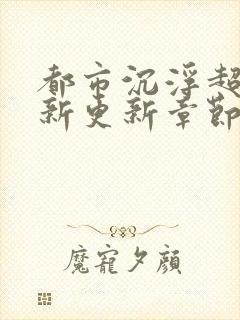 都市沉浮超
新更新章節
魔寵夕顏